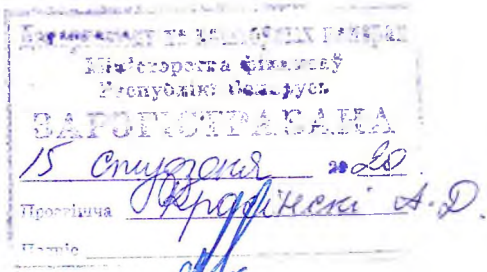 Дэпартамент па каштоўных паперах
Міністэрства фінансаў
Рэспублікі Беларусь
ЗАРЭГІСТРАВАНА
15 студзеня 20 20.
Прозвішча А.Д.
Подпіс